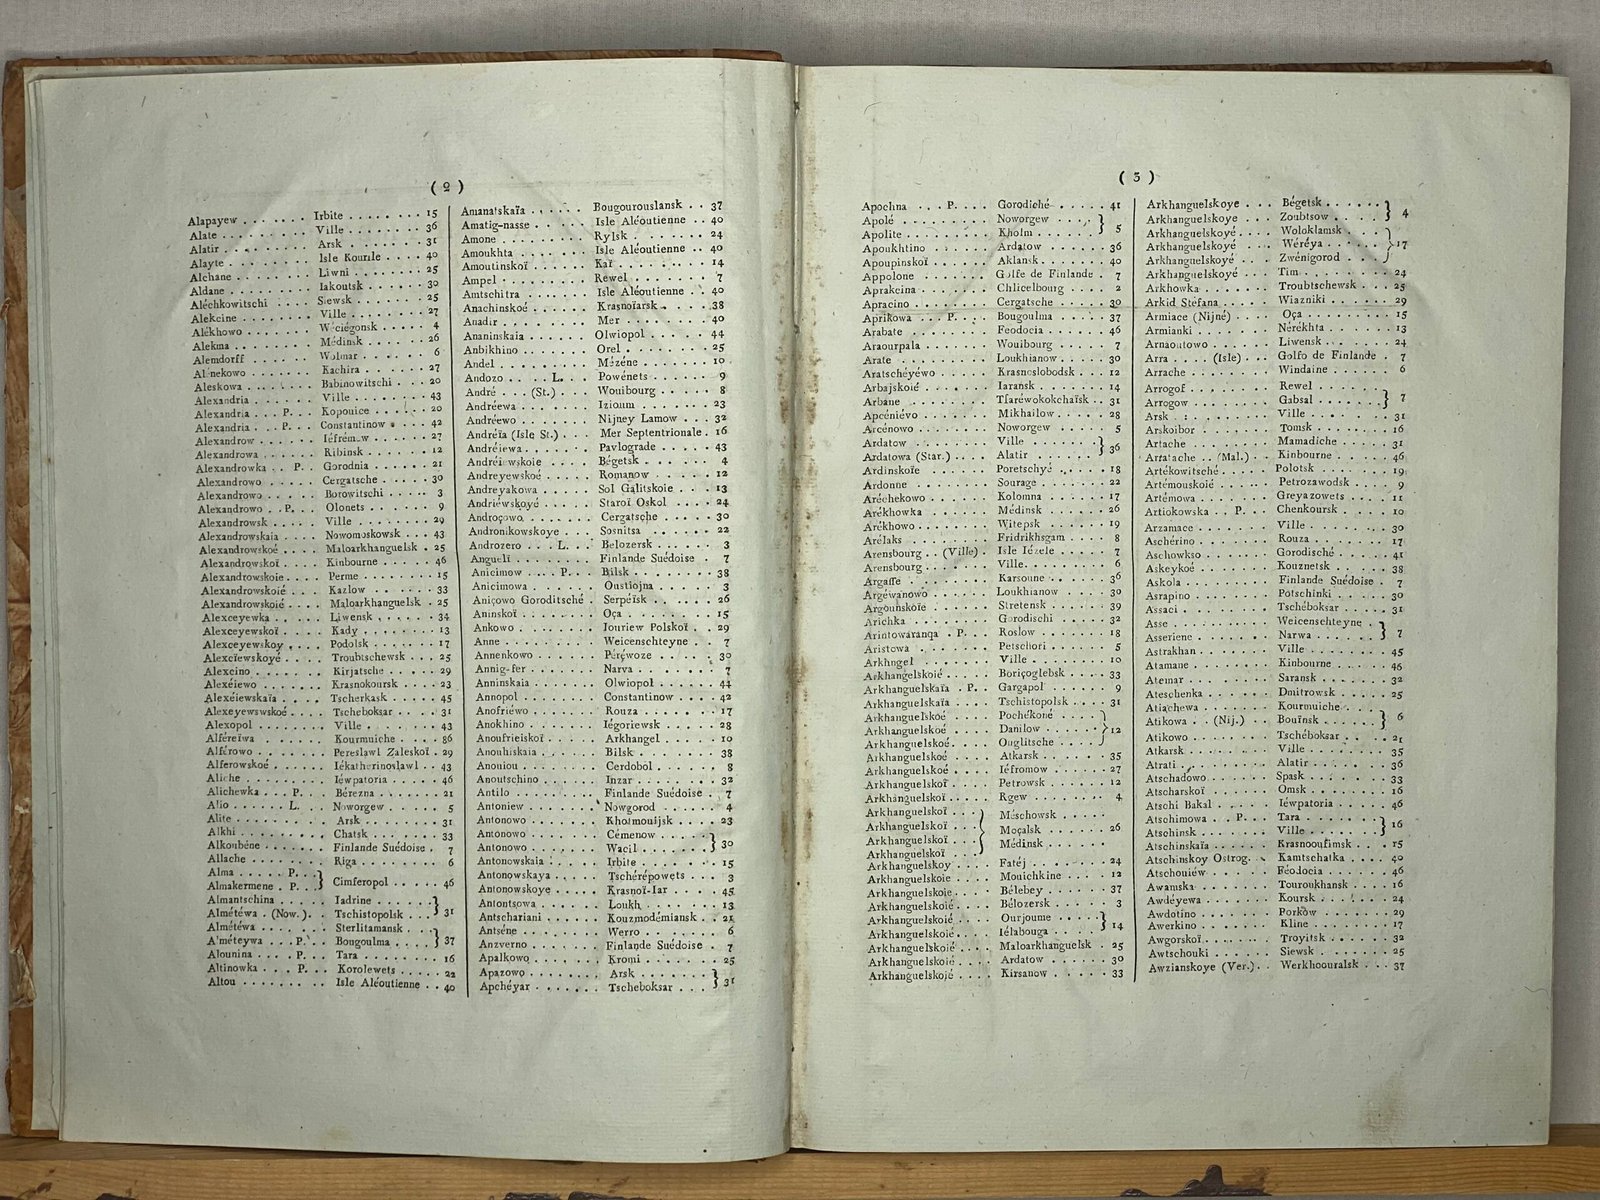 ( 2 )
Alapayew . . . . . . . Irbite . . . . . . . . 15
Alate . . . . . . . . Ville . . . . . . . . 36
Alatir . . . . . . . . Arsk . . . . . . . . 31
Alayte . . . . . . . . Isle Kourile . . . 40
Alchane . . . . . . . Liwni . . . . . . . 25
Aldane . . . . . . . . Iakoutsk . . . . . 30
Aléchkowitschi . . . . Siewsk . . . . . . 25
Alekcine . . . . . . . Ville . . . . . . . 27
Alékhowo . . . . . . . Weciégonsk . . . . . 4
Alekma . . . . . . . . Médinsk . . . . . 26
Alemdorff . . . . . . Wolmar . . . . . . 6
Alenekowo . . . . . . Kachira . . . . . . 27
Aleskowa . . . . . . . Babinowitschi . . . 20
Alexandria . . . . . . Ville . . . . . . . 43
Alexandria . . P. . . . Kopouice . . . . . 20
Alexandria . . P. . . . Constantinow . . 42
Alexandrow . . . . . . Iéfrémow . . . . . 27
Alexandrowa . . . . . Ribinsk . . . . . . 12
Alexandrowka . . P. . . Gorodnia . . . . . 21
Alexandrowo . . . . . Cergatsche . . . . 30
Alexandrowo . . . . . Borowitschi . . . . 3
Alexandrowo . . P. . . Olonets . . . . . . 9
Alexandrowsk . . . . . Ville . . . . . . . 29
Alexandrowskaia . . . . Nowomoskowsk . . . 43
Alexandrowskoé . . . . Maloarkhanguelsk . 25
Alexandrowskoï . . . . Kinbourne . . . . . 46
Alexandrowskoie . . . . Perme . . . . . . . 15
Alexandrowskoié . . . . Kazlow . . . . . . 33
Alexandrowskoié . . . . Maloarkhanguelsk . 25
Alexceyewka . . . . . Liwensk . . . . . . 34
Alexceyewskoï . . . . Kady . . . . . . . 13
Alexceyewskoy . . . . Podolsk . . . . . . 17
Alexcïewskoyé . . . . Troubtschewsk . . . 25
Alexcino . . . . . . . Kirjatsche . . . . 29
Alexéiewo . . . . . . Krasnokoursk . . . 23
Alexéiewskaïa . . . . Tscherkask . . . . 45
Alexeyewswskoé . . . . Tscheboksar . . . . 31
Alexopol . . . . . . . Ville . . . . . . . 43
Alféreïwa . . . . . . Kourmuiche . . . . 86
Alférowo . . . . . . . Pereslawl Zaleskoï . 29
Alferowskoé . . . . . Iékatherinoslawl . . 43
Aliche . . . . . . . . Iéwpatoria . . . . 46
Alichewka . . . P. . . Bérezna . . . . . . 21
Alio . . . . . . L. . . Noworgew . . . . . 5
Alite . . . . . . . . Arsk . . . . . . . 31
Alkhi . . . . . . . . Chatsk . . . . . . 33
Alkoubéne . . . . . . Finlande Suédoise . 7
Allache . . . . . . . Riga . . . . . . . 6
Alma . . . . . . P. . .
Almakermene . . P. . . } Cimferopol . . . . . 46
Almantschina . . . . . Iadrine . . . . . .
Almétéwa . (Now.) . . Tschistopolsk . . . } 31
Almétéwa . . . . . . . Sterlitamansk . . .
A'méteywa . . . P. . . Bougoulma . . . . } 37
Alounina . . . . P. . . Tara . . . . . . . 16
Altinowka . . . P. . . Korolewets . . . . 22
Altou . . . . . . . . Isle Aléoutienne . . 40
Amanatskaïa . . . . . . Bougourouslansk . . 37
Amatig-nasse . . . . . Isle Aléoutienne . . 40
Amone . . . . . . . . Rylsk . . . . . . . 24
Amoukhta . . . . . . . Isle Aléoutienne . . 40
Amoutinskoï . . . . . Kaï . . . . . . . . 14
Ampel . . . . . . . . Rewel . . . . . . . 7
Amtschitra . . . . . . Isle Aléoutienne . . 40
Anachinskoé . . . . . Krasnoïarsk . . . . 38
Anadir . . . . . . . . Mer . . . . . . . . 40
Ananinskaia . . . . . Olwiopol . . . . . 44
Anbikhino . . . . . . Orel . . . . . . . 25
Andel . . . . . . . . Mézéne . . . . . . 10
Andozo . . . . L. . . . Powénets . . . . . 9
André . . . (St.) . . . Wouibourg . . . . . 8
Andréewa . . . . . . . Izioum . . . . . . 23
Andréewo . . . . . . . Nijney Lamow . . . 32
Andréïa (Isle St.) . . . Mer Septentrionale . 16
Andréiewa . . . . . . Pavlograde . . . . 43
Andréiewskoie . . . . Bégetsk . . . . . . 4
Andreyewskoé . . . . . Romanow . . . . . 12
Andreyakowa . . . . . Sol Galitskoie . . . 13
Andriéwskoyé . . . . . Staroï Oskol . . . . 24
Androçowo . . . . . . Cergatsche . . . . 30
Andronikowskoye . . . . Sosnitsa . . . . . 22
Androzero . . . L. . . Belozersk . . . . . 3
Angueli . . . . . . . Finlande Suédoise . 7
Anicimow . . . . P. . . Bilsk . . . . . . . 38
Anicimowa . . . . . . Oustiojna . . . . . 3
Aniçowo Goroditsché . Serpéïsk . . . . . 26
Aninskoï . . . . . . . Oça . . . . . . . . 15
Ankowo . . . . . . . . Iouriew Polskoï . . 29
Anne . . . . . . . . . Weicenschteyne . . 7
Annenkowo . . . . . . Péréwoze . . . . . 30
Annig-fer . . . . . . Narva . . . . . . . 7
Anninskaia . . . . . . Olwiopol . . . . . 44
Annopol . . . . . . . Constantinow . . . 42
Anofriéwo . . . . . . Rouza . . . . . . . 17
Anokhino . . . . . . . Iégoriewsk . . . . 28
Anoufrieiskoï . . . . Arkhangel . . . . . 10
Anouhiskaia . . . . . Bilsk . . . . . . . 38
Anouiou . . . . . . . Cerdobol . . . . . 8
Anoutschino . . . . . Inzar . . . . . . . 32
Antilo . . . . . . . . Finlande Suédoise . 7
Antoniew . . . . . . . Nowgorod . . . . . 4
Antonowo . . . . . . . Kholmouijsk . . . . 23
Antonowo . . . . . . . Cémenow . . . . .
Antonowo . . . . . . . Wacil . . . . . . } 30
Antonowskaia . . . . . Irbite . . . . . . 15
Antonowskaya . . . . . Tschérépowets . . . 3
Antonowskoye . . . . . Krasnoï-Iar . . . . 45
Antontsowa . . . . . . Loukh . . . . . . . 13
Antschariani . . . . . Kouzmodémiansk . . 21
Antséne . . . . . . . Werro . . . . . . . 6
Anzverno . . . . . . . Finlande Suédoise . 7
Apalkowo . . . . . . . Kromi . . . . . . . 25
Apazowo . . . . . . . Arsk . . . . . . .
Apchéyar . . . . . . . Tscheboksar . . . } 31
( 3 )
Apochna . . . P. . . . Gorodiché . . . . . 41
Apolé . . . . . . . . Noworgew . . . .
Apolite . . . . . . . Kholm . . . . . . } 5
Apoukhtino . . . . . . Ardatow . . . . . . 36
Apoupinskoï . . . . . Aklansk . . . . . . 40
Appolone . . . . . . . Golfe de Finlande . 7
Aprakcina . . . . . . Chlicelbourg . . . 2
Apracino . . . . . . . Cergatsche . . . . 30
Aprikowa . . . P. . . . Bougoulma . . . . . 37
Arabate . . . . . . . Feodocia . . . . . 46
Araourpala . . . . . . Wouibourg . . . . . 7
Arate . . . . . . . . Loukhianow . . . . 30
Aratschéyéwo . . . . . Krasnoslobodsk . . 12
Arbajskoié . . . . . . Iaransk . . . . . . 14
Arbane . . . . . . . . Tfaréwokokchaïsk . . 31
Apcéniévo . . . . . . Mikhailow . . . . . 28
Arcénowo . . . . . . . Noworgew . . . . . 5
Ardatow . . . . . . . Ville . . . . . . .
Ardatowa (Star.) . . . Alatir . . . . . . } 36
Ardinskoïe . . . . . . Poretschyé . . . . 18
Ardonne . . . . . . . Sourage . . . . . . 22
Aréchekowo . . . . . . Kolomna . . . . . . 17
Arékhowka . . . . . . Médinsk . . . . . . 26
Arékhowo . . . . . . . Witepsk . . . . . . 19
Arélaks . . . . . . . Fridrikhsgam . . . 8
Arensbourg . . (Ville) . Isle Iézele . . . . 7
Arensbourg . . . . . . Ville . . . . . . . 6
Argaffe . . . . . . . Karsoune . . . . . 36
Argéwanowo . . . . . . Loukhianow . . . . 30
Argounskoïe . . . . . Stretensk . . . . . 39
Arichka . . . . . . . Gorodischi . . . . 32
Arintowaranga . P. . . Roslow . . . . . . 18
Aristowa . . . . . . . Petschori . . . . . 5
Arkhngel . . . . . . . Ville . . . . . . . 10
Arkhangelskoié . . . . Boriçoglebsk . . . 33
Arkhanguelskaïa . P. . Gargapol . . . . . 9
Arkhanguelskaïa . . . . Tschistopolsk . . . 31
Arkhanguelskoé . . . . Pochékoné . . . .
Arkhanguelskoé . . . . Danilow . . . . . } 12
Arkhanguelskoé . . . . Ouglitsche . . . .
Arkhanguelskoé . . . . Atkarsk . . . . . . 35
Arkhanguelskoé . . . . Iéfromow . . . . . 27
Arkhanguelskoï . . . . Petrowsk . . . . . 12
Arkhanguelskoï . . . . Rgew . . . . . . . 4
Arkhanguelskoï . . . . Méschowsk . . . . .
Arkhanguelskoï . . . . Moçalsk . . . . . . 26
Arkhanguelskoï . . . } Médinsk . . . . . .
Arkhanguelskoï . . . .
Arkhanguelskoy . . . . Fatéj . . . . . . . 24
Arkhanguelskoie . . . . Mouichkine . . . . 12
Arkhanguelskoie . . . . Bélebey . . . . . . 37
Arkhanguelskoié . . . . Bélozersk . . . . . 3
Arkhanguelskoié . . . . Ourjoume . . . . .
Arkhanguelskoié . . . . Iélabouga . . . . } 14
Arkhanguelskoié . . . . Maloarkhanguelsk . 25
Arkhanguelskoié . . . . Ardatow . . . . . . 30
Arkhanguelskoié . . . . Kirsanow . . . . . 33
Arkhanguelskoye . . . . Bégetsk . . . . . .
Arkhanguelskoye . . . . Zoubtsow . . . . } 4
Arkhanguelskoyé . . . . Woloklamsk . . . .
Arkhanguelskoyé . . . . Wéréya . . . . . } 17
Arkhanguelskoyé . . . . Zwénigorod . . . .
Arkhanguelskoyé . . . . Tim . . . . . . . . 24
Arkhowka . . . . . . . Troubtschewsk . . . 25
Arkid Stéfana . . . . Wiazniki . . . . . 29
Armiace (Nijné) . . . Oça . . . . . . . . 15
Armianki . . . . . . . Nérékhta . . . . . 13
Arnaoutowo . . . . . . Liwensk . . . . . . 24
Arra . . . (Isle) . . . Golfo de Finlande . 7
Arrache . . . . . . . Windaine . . . . . 6
Arrogof . . . . . . . Rewel . . . . . . .
Arrogow . . . . . . . Gabsal . . . . . . } 7
Arsk . . . . . . . . . Ville . . . . . . . 31
Arskoibor . . . . . . Tomsk . . . . . . . 16
Artache . . . . . . . Mamadiche . . . . . 31
Arfatache . . (Mal.) . Kinbourne . . . . . 46
Artékowitsché . . . . Polotsk . . . . . . 19
Artémouskoié . . . . . Petrozawodsk . . . 9
Artémowa . . . . . . . Greyazowets . . . . 11
Artiokowska . . P. . . Chenkoursk . . . . 10
Arzamace . . . . . . . Ville . . . . . . . 30
Aschérino . . . . . . Rouza . . . . . . . 17
Aschowkso . . . . . . Gorodisché . . . . 41
Askeykoé . . . . . . . Kouznetsk . . . . . 38
Askola . . . . . . . . Finlande Suédoise . 7
Asrapino . . . . . . . Potschinki . . . . 30
Assaci . . . . . . . . Tschéboksar . . . . 31
Asse . . . . . . . . . Weicenschteyne .
Asseriene . . . . . . Narwa . . . . . . } 7
Astrakhan . . . . . . Ville . . . . . . . 45
Atamane . . . . . . . Kinbourne . . . . . 46
Atemar . . . . . . . . Saransk . . . . . . 32
Ateschenka . . . . . . Dmitrowsk . . . . . 25
Atiachewa . . . . . . Kourmuiche . . . .
Atikowa . . (Nij.) . . Bouïnsk . . . . . } 6
Atikowo . . . . . . . Tschéboksar . . . . 21
Atkarsk . . . . . . . Ville . . . . . . . 35
Atrati . . . . . . . . Alatir . . . . . . 36
Atschadowo . . . . . . Spask . . . . . . . 33
Atscharskoï . . . . . Omsk . . . . . . . 16
Atschi Bakal . . . . . Iéwpatoria . . . . 46
Atschimowa . . . P. . . Tara . . . . . . .
Atschinsk . . . . . . Ville . . . . . . } 16
Atschinskaïa . . . . . Krasnooufimsk . . . 15
Atschinskoy Ostrog. . . Kamtschatka . . . . 40
Atschouiéw . . . . . . Féodocia . . . . . 46
Awamska . . . . . . . Touroukhansk . . . 16
Awdéyewa . . . . . . . Koursk . . . . . . 24
Awdotino . . . . . . . Porkow . . . . . . 29
Awerkino . . . . . . . Kline . . . . . . . 17
Awgorskoï . . . . . . Troyitsk . . . . . 32
Awtschouki . . . . . . Siewsk . . . . . . 25
Awzianskoye (Ver.) . . Werkhoouralsk . . . 37